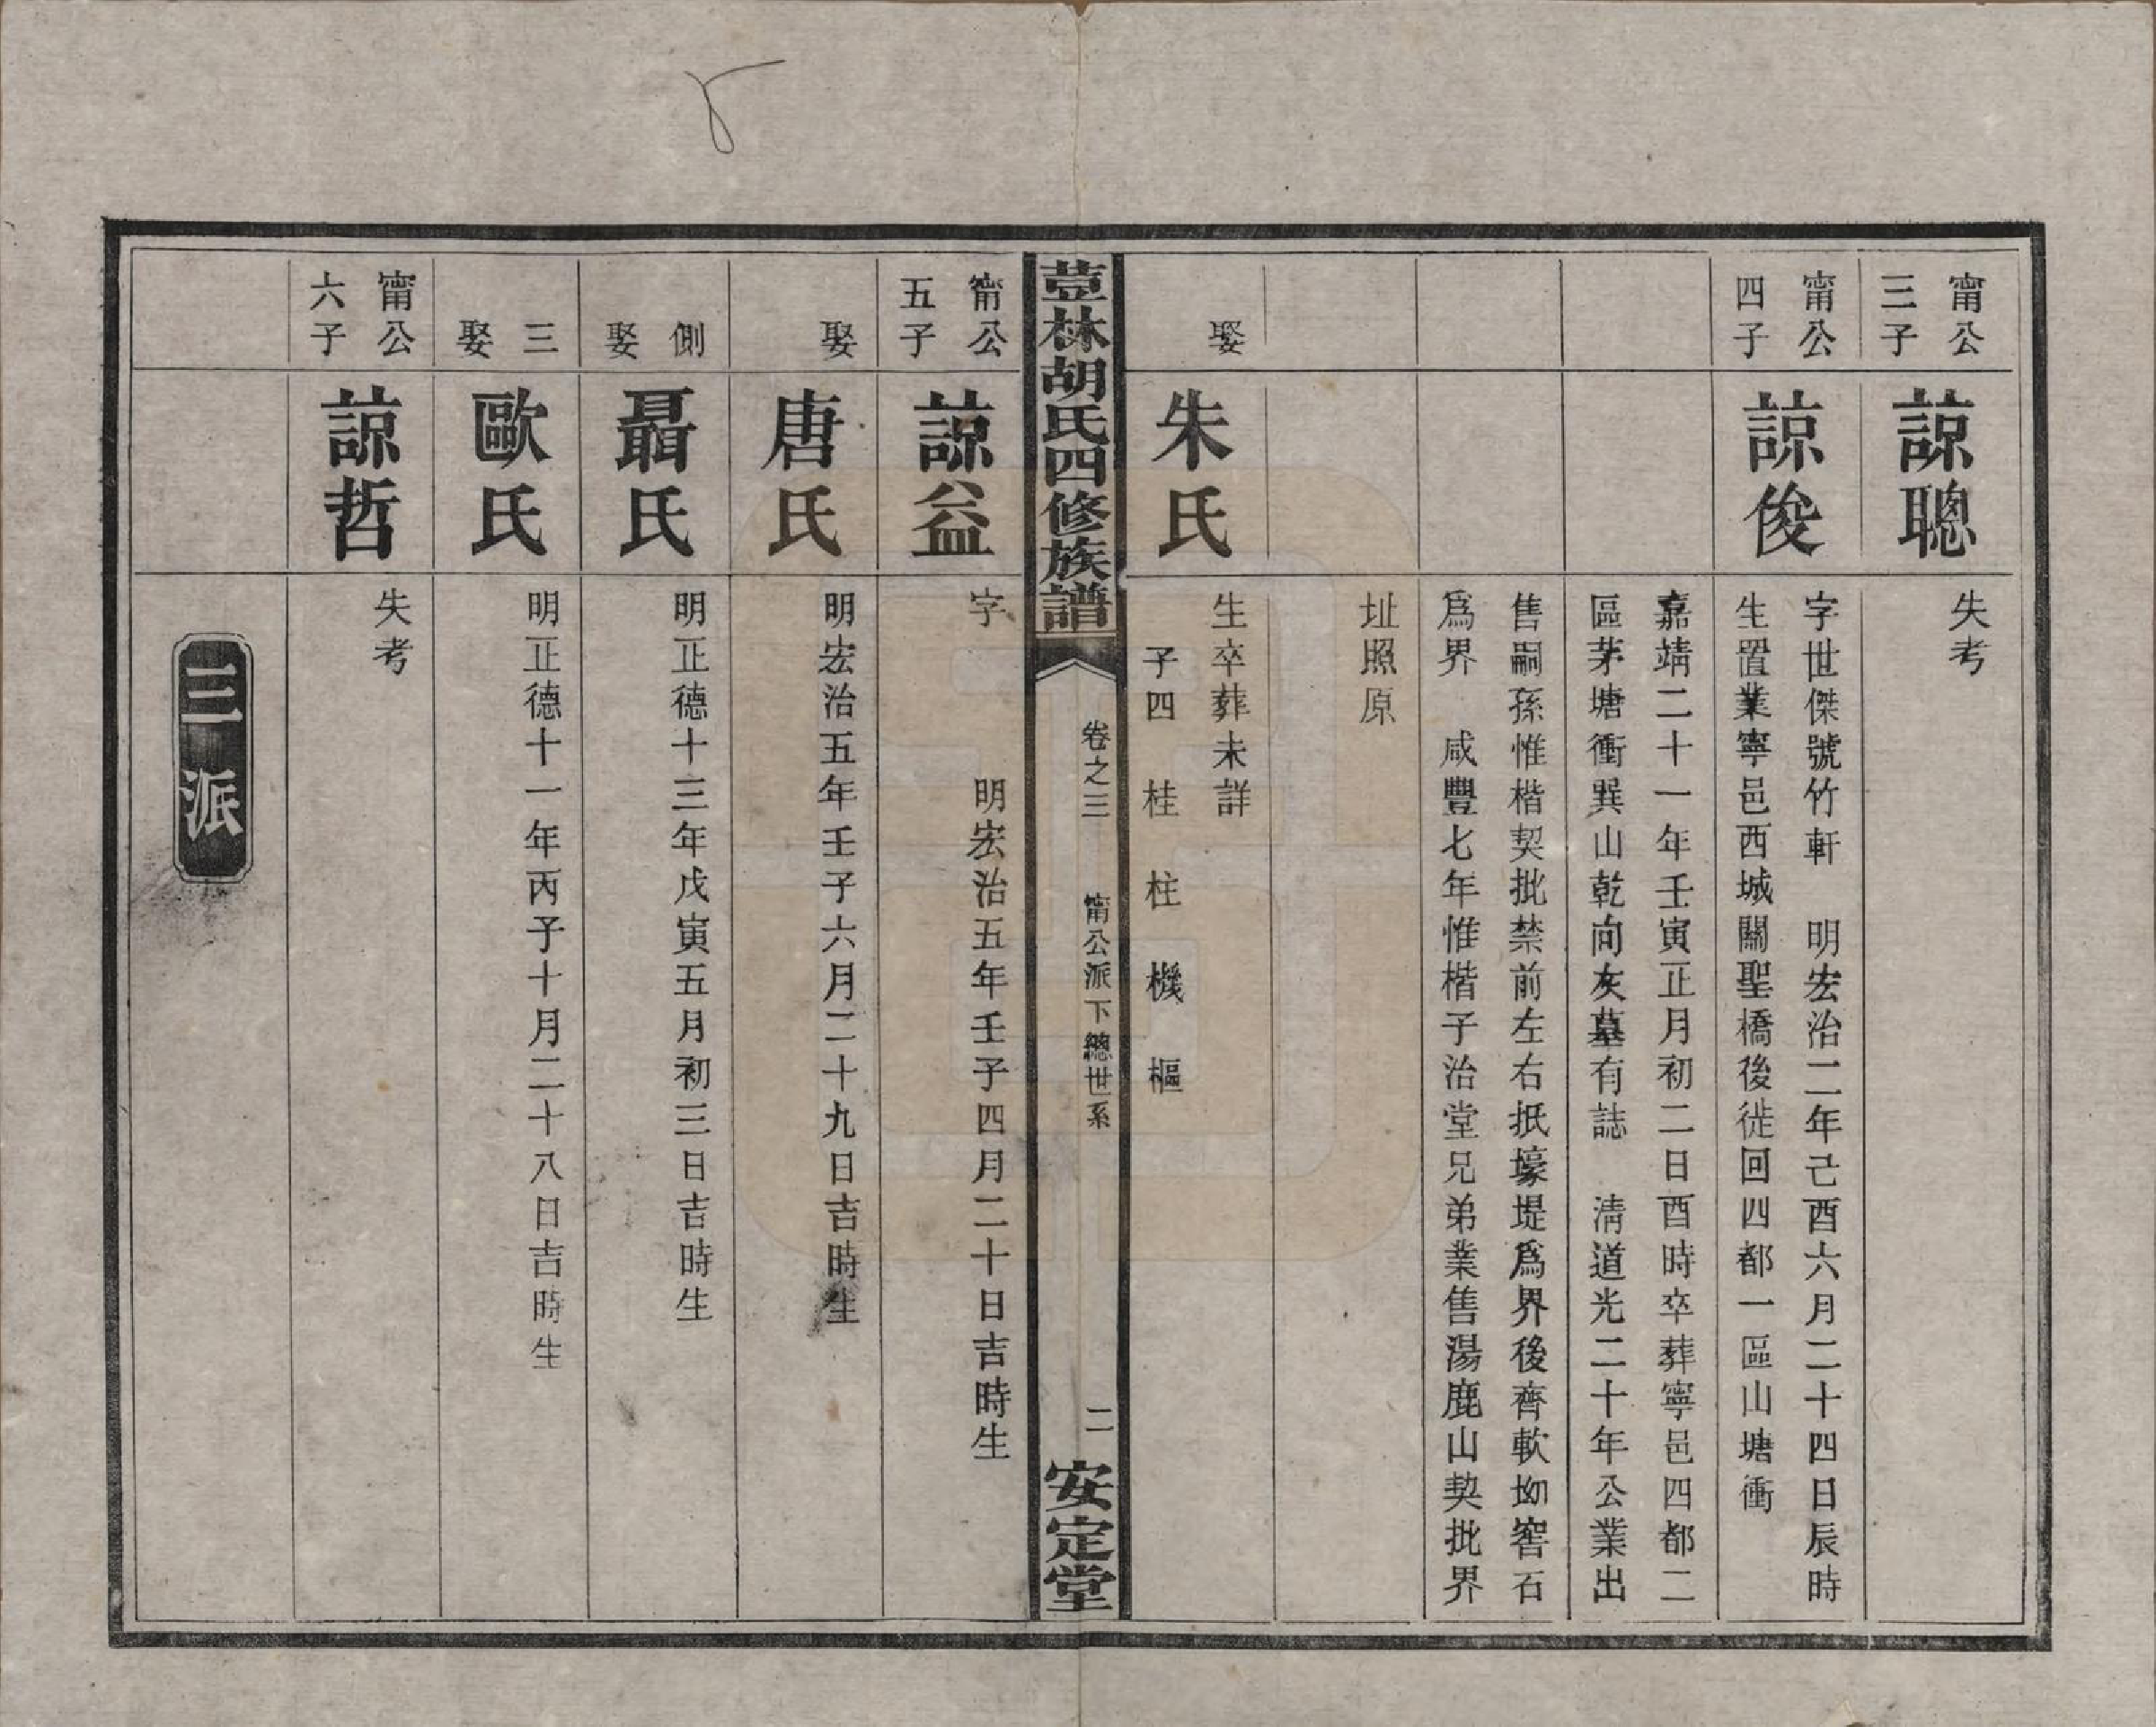 甯公
三子
諒聰
失考
甯公
四子
諒俊
字世傑號竹軒　明宏治二年己酉六月二十四日辰時
生置業寧邑西城關聖橋後徙回四都一區山塘衝
嘉靖二十一年壬寅正月初二日酉時卒葬寧邑四都二
區茅塘衝巽山乾向灰墓有誌　淸道光二十年公業出
售嗣孫惟楷契批禁前左右抵壕堤爲界後齊軟坳窖石
爲界　咸豐七年惟楷子治堂兄弟業售湯鹿山契批界
址照原
娶
朱氏
生卒葬未詳
子四　桂　柱　機　樞
荳林胡氏四修族譜
卷之三　甯公派下總世系
二
安定堂
甯公
五子
諒益
字　　　明宏治五年壬子四月二十日吉時生
娶
唐氏
明宏治五年壬子六月二十九日吉時生
側
娶
聶氏
明正德十三年戊寅五月初三日吉時生
三
娶
歐氏
明正德十一年丙子十月二十八日吉時生
甯公
六子
諒哲
失考
三派